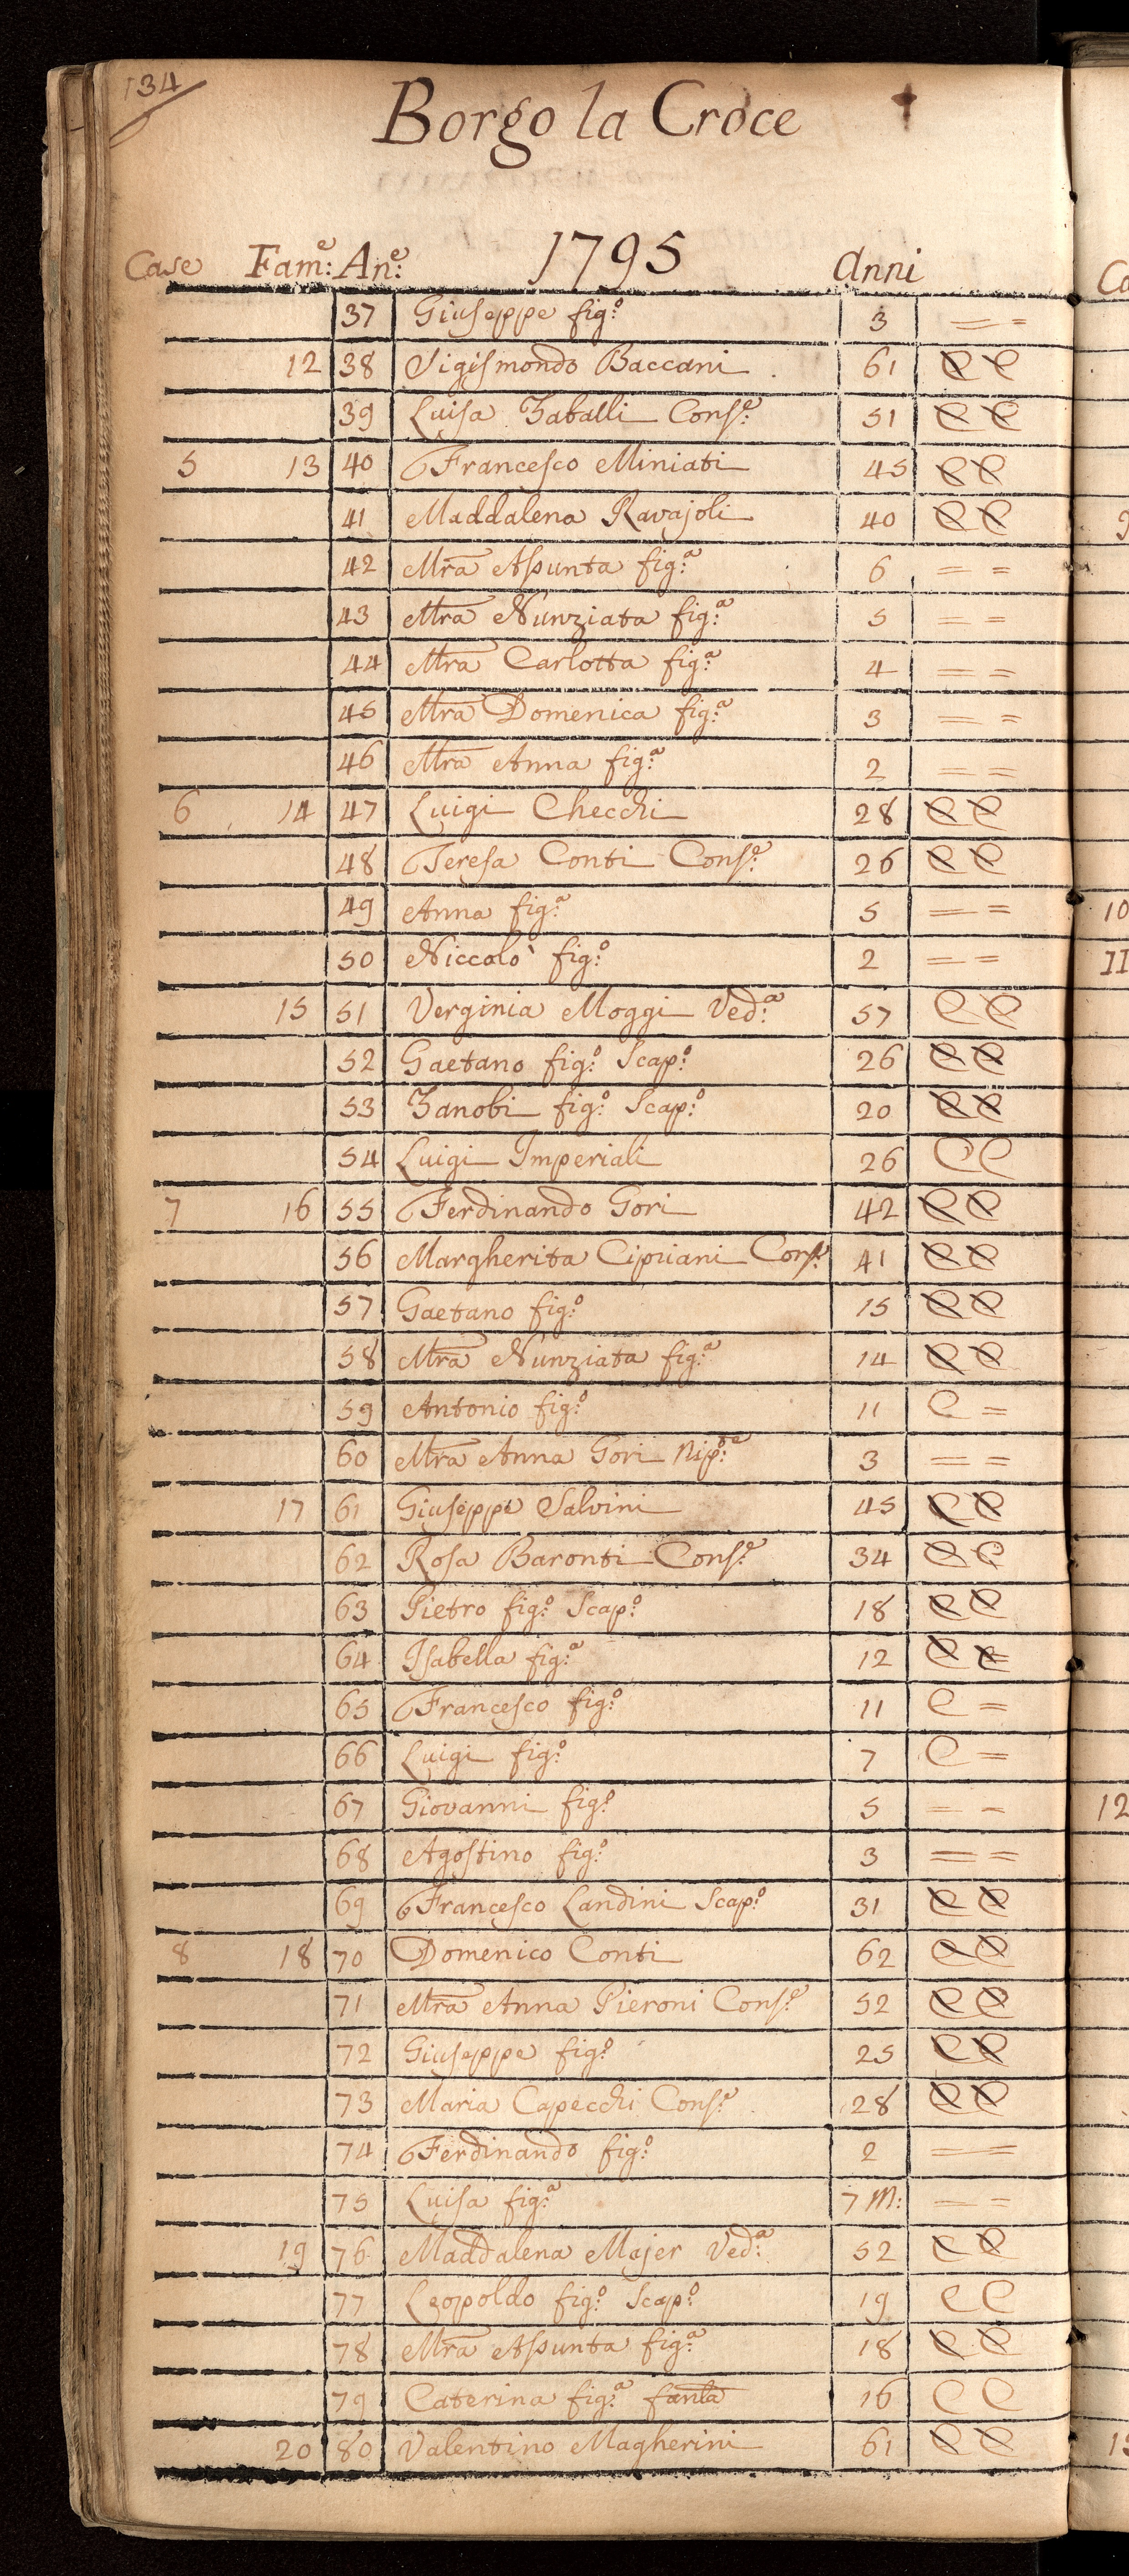 134
Borgo la Croce
Case Fam:e An:e 1795 Anni
37 Giuseppe fig:o 3 = =
12 38 Sigismondo Baccani 61 C C
39 Luisa Zaballi Cons:e 51 C C
5 13 40 Francesco Miniati 45 C C
41 Maddalena Ravajoli 40 C C
42 Mra Assunta fig:a 6 = =
43 Mra Nunziata fig:a 5 = =
44 Mra Carlotta fig:a 4 = =
45 Mra Domenica fig:a 3 = =
46 Mra Anna fig:a 2 = =
6 14 47 Luigi Checchi 28 C C
48 Teresa Conti Cons:e 26 C C
49 Anna fig:a 5 = =
50 Niccolò fig:o 2 = =
15 51 Verginia Moggi Ved:a 57 C C
52 Gaetano fig:o Scap:o 26 C C
53 Zanobi fig:o Scap:o 20 C C
54 Luigi Imperiali 26 C C
7 16 55 Ferdinando Gori 42 C C
56 Margherita Cipriani Cons:e 41 C C
57 Gaetano fig:o 15 C C
58 Mra Nunziata fig:a 14 C C
59 Antonio fig:o 11 C =
60 Mra Anna Gori Nip:te 3 = =
17 61 Giuseppe Salvini 45 C C
62 Rosa Baronti Cons:e 34 C C
63 Pietro fig:o Scap:o 18 C C
64 Isabella fig:a 12 C C
65 Francesco fig:o 11 C =
66 Luigi fig:o 7 C =
67 Giovanni fig:o 5 = =
68 Agostino fig:o 3 = =
69 Francesco Landini Scap:o 31 C C
8 18 70 Domenico Conti 62 C C
71 Mra Anna Pieroni Cons:e 52 C C
72 Giuseppe fig:o 25 C C
73 Maria Capecchi Cons:e 28 C C
74 Ferdinando fig:o 2 = =
75 Luisa fig:a 7 M: = =
19 76 Maddalena Majer Ved:a 52 C C
77 Leopoldo fig:o Scap:o 19 C C
78 Mra Assunta fig:a 18 C C
79 Caterina fig:a fanla 16 C C
20 80 Valentino Magherini 61 C C
10
11
12